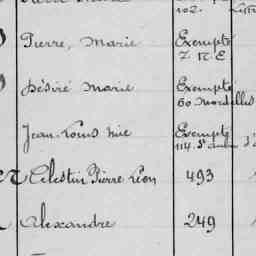 102.
Pierre, Marie Exempté
Z. R. E
Désiré Marie Exempté
60 Mordelles
Jean Louis Mie Exempté
114. St aubin
Célestin Pierre Léon 493
Alexandre 249